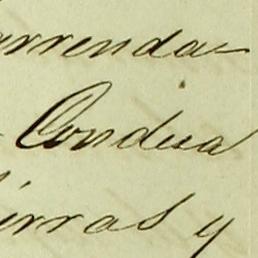 arrenda-
Condesa
ierras y